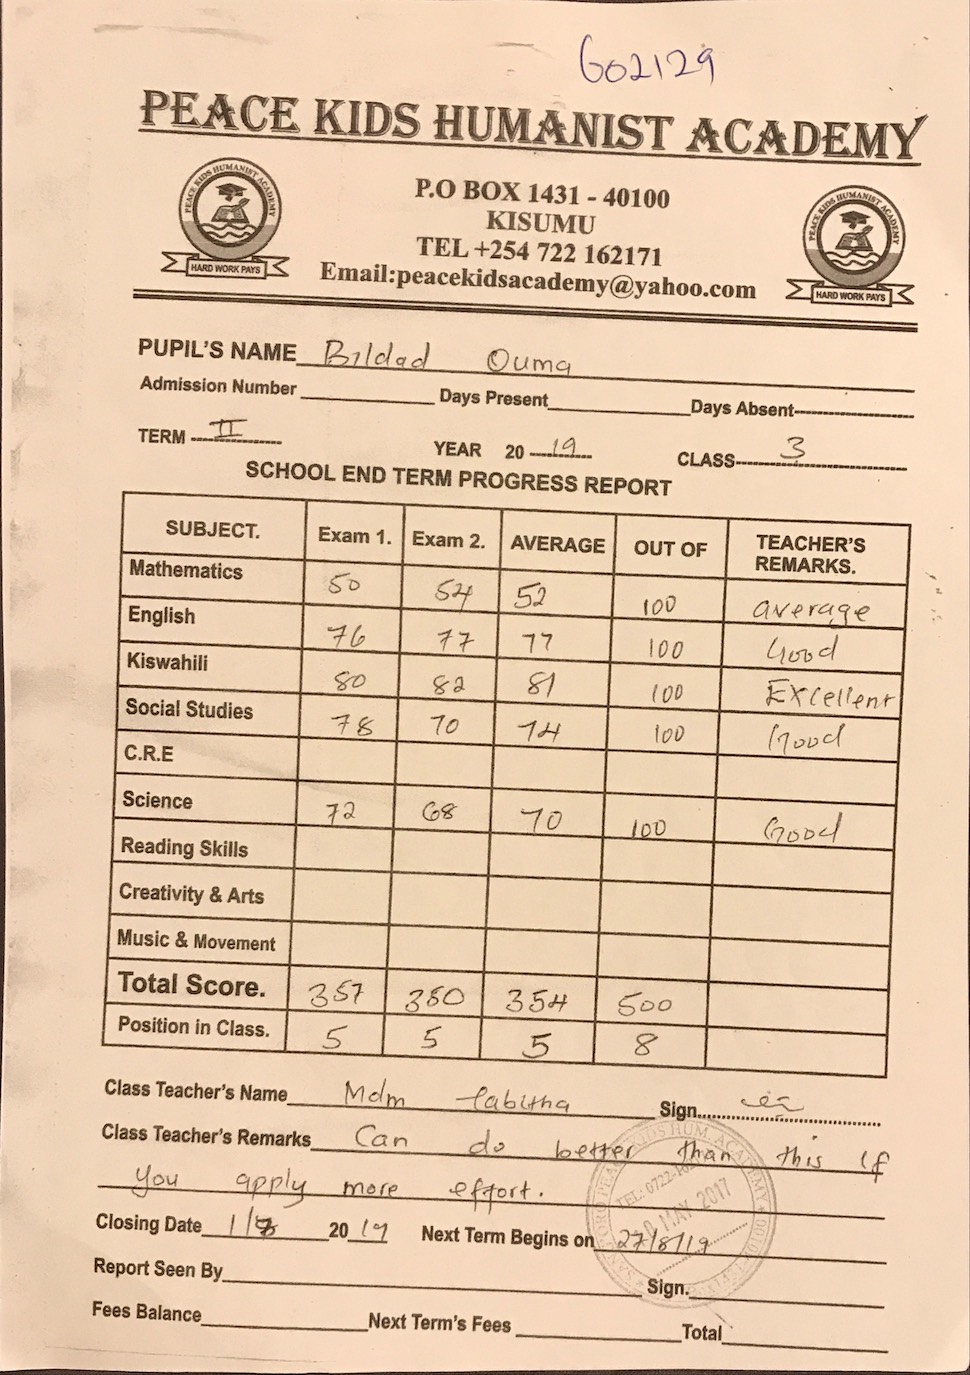 G02129
PEACE KIDS HUMANIST ACADEMY
PEACE KIDS HUMANIST ACADEMY
HARD WORK PAYS
P.O BOX 1431 - 40100
KISUMU
TEL +254 722 162171
Email:peacekidsacademy@yahoo.com
PEACE KIDS HUMANIST ACADEMY
HARD WORK PAYS
PUPIL'S NAME Bildad Ouma
Admission Number Days Present Days Absent
TERM II YEAR 20 19 CLASS 3
SCHOOL END TERM PROGRESS REPORT
SUBJECT. Exam 1. Exam 2. AVERAGE OUT OF TEACHER'S REMARKS.
Mathematics 50 54 52 100 average
English 76 77 77 100 Good
Kiswahili 80 82 81 100 Excellent
Social Studies 78 70 74 100 Good
C.R.E
Science 72 68 70 100 Good
Reading Skills
Creativity & Arts
Music & Movement
Total Score. 357 350 354 500
Position in Class. 5 5 5 8
Class Teacher's Name Mdm Tabitha Sign
Class Teacher's Remarks Can do better than this if
you apply more effort.
Closing Date 1/8 20 19 Next Term Begins on 27/8/19
Report Seen By Sign.
Fees Balance Next Term's Fees Total
MAY 2017